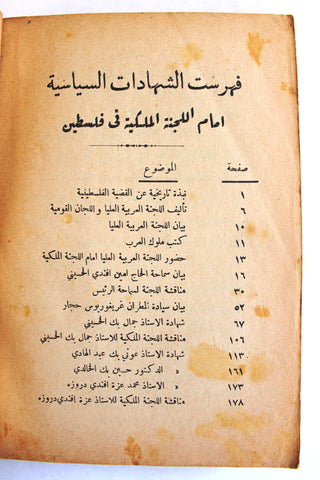 فهرست الشهادات السياسية
امام اللجنة الملكية فى فلسطين
صفحة الموضوع
١ نبذة تاريخية عن القضية الفلسطينية
٦ تأليف اللجنة العربية العليا واللجان القومية
١٠ بيان اللجنة العربية العليا
١١ كتب ملوك العرب
١٣ حضور اللجنة العربية العليا امام اللجنة الملكية
١٦ بيان سماحة الحاج امين افندي الحسيني
٣٠ مناقشة اللجنة لسماحة الرئيس
٥٢ بيان سيادة المطران غريغوريوس حجار
٦٧ شهادة الاستاذ جمال بك الحسيني
١٠٦ مناقشة اللجنة الملكية للاستاذ جمال بك الحسيني
١١٣ شهادة الاستاذ عوني بك عبد الهادي
١٦١ » الدكتور حسين بك الخالدي
١٧٣ » الاستاذ محمد عزة افندي دروزه
١٧٨ مناقشة اللجنة الملكية للاستاذ عزة افندي دروزه